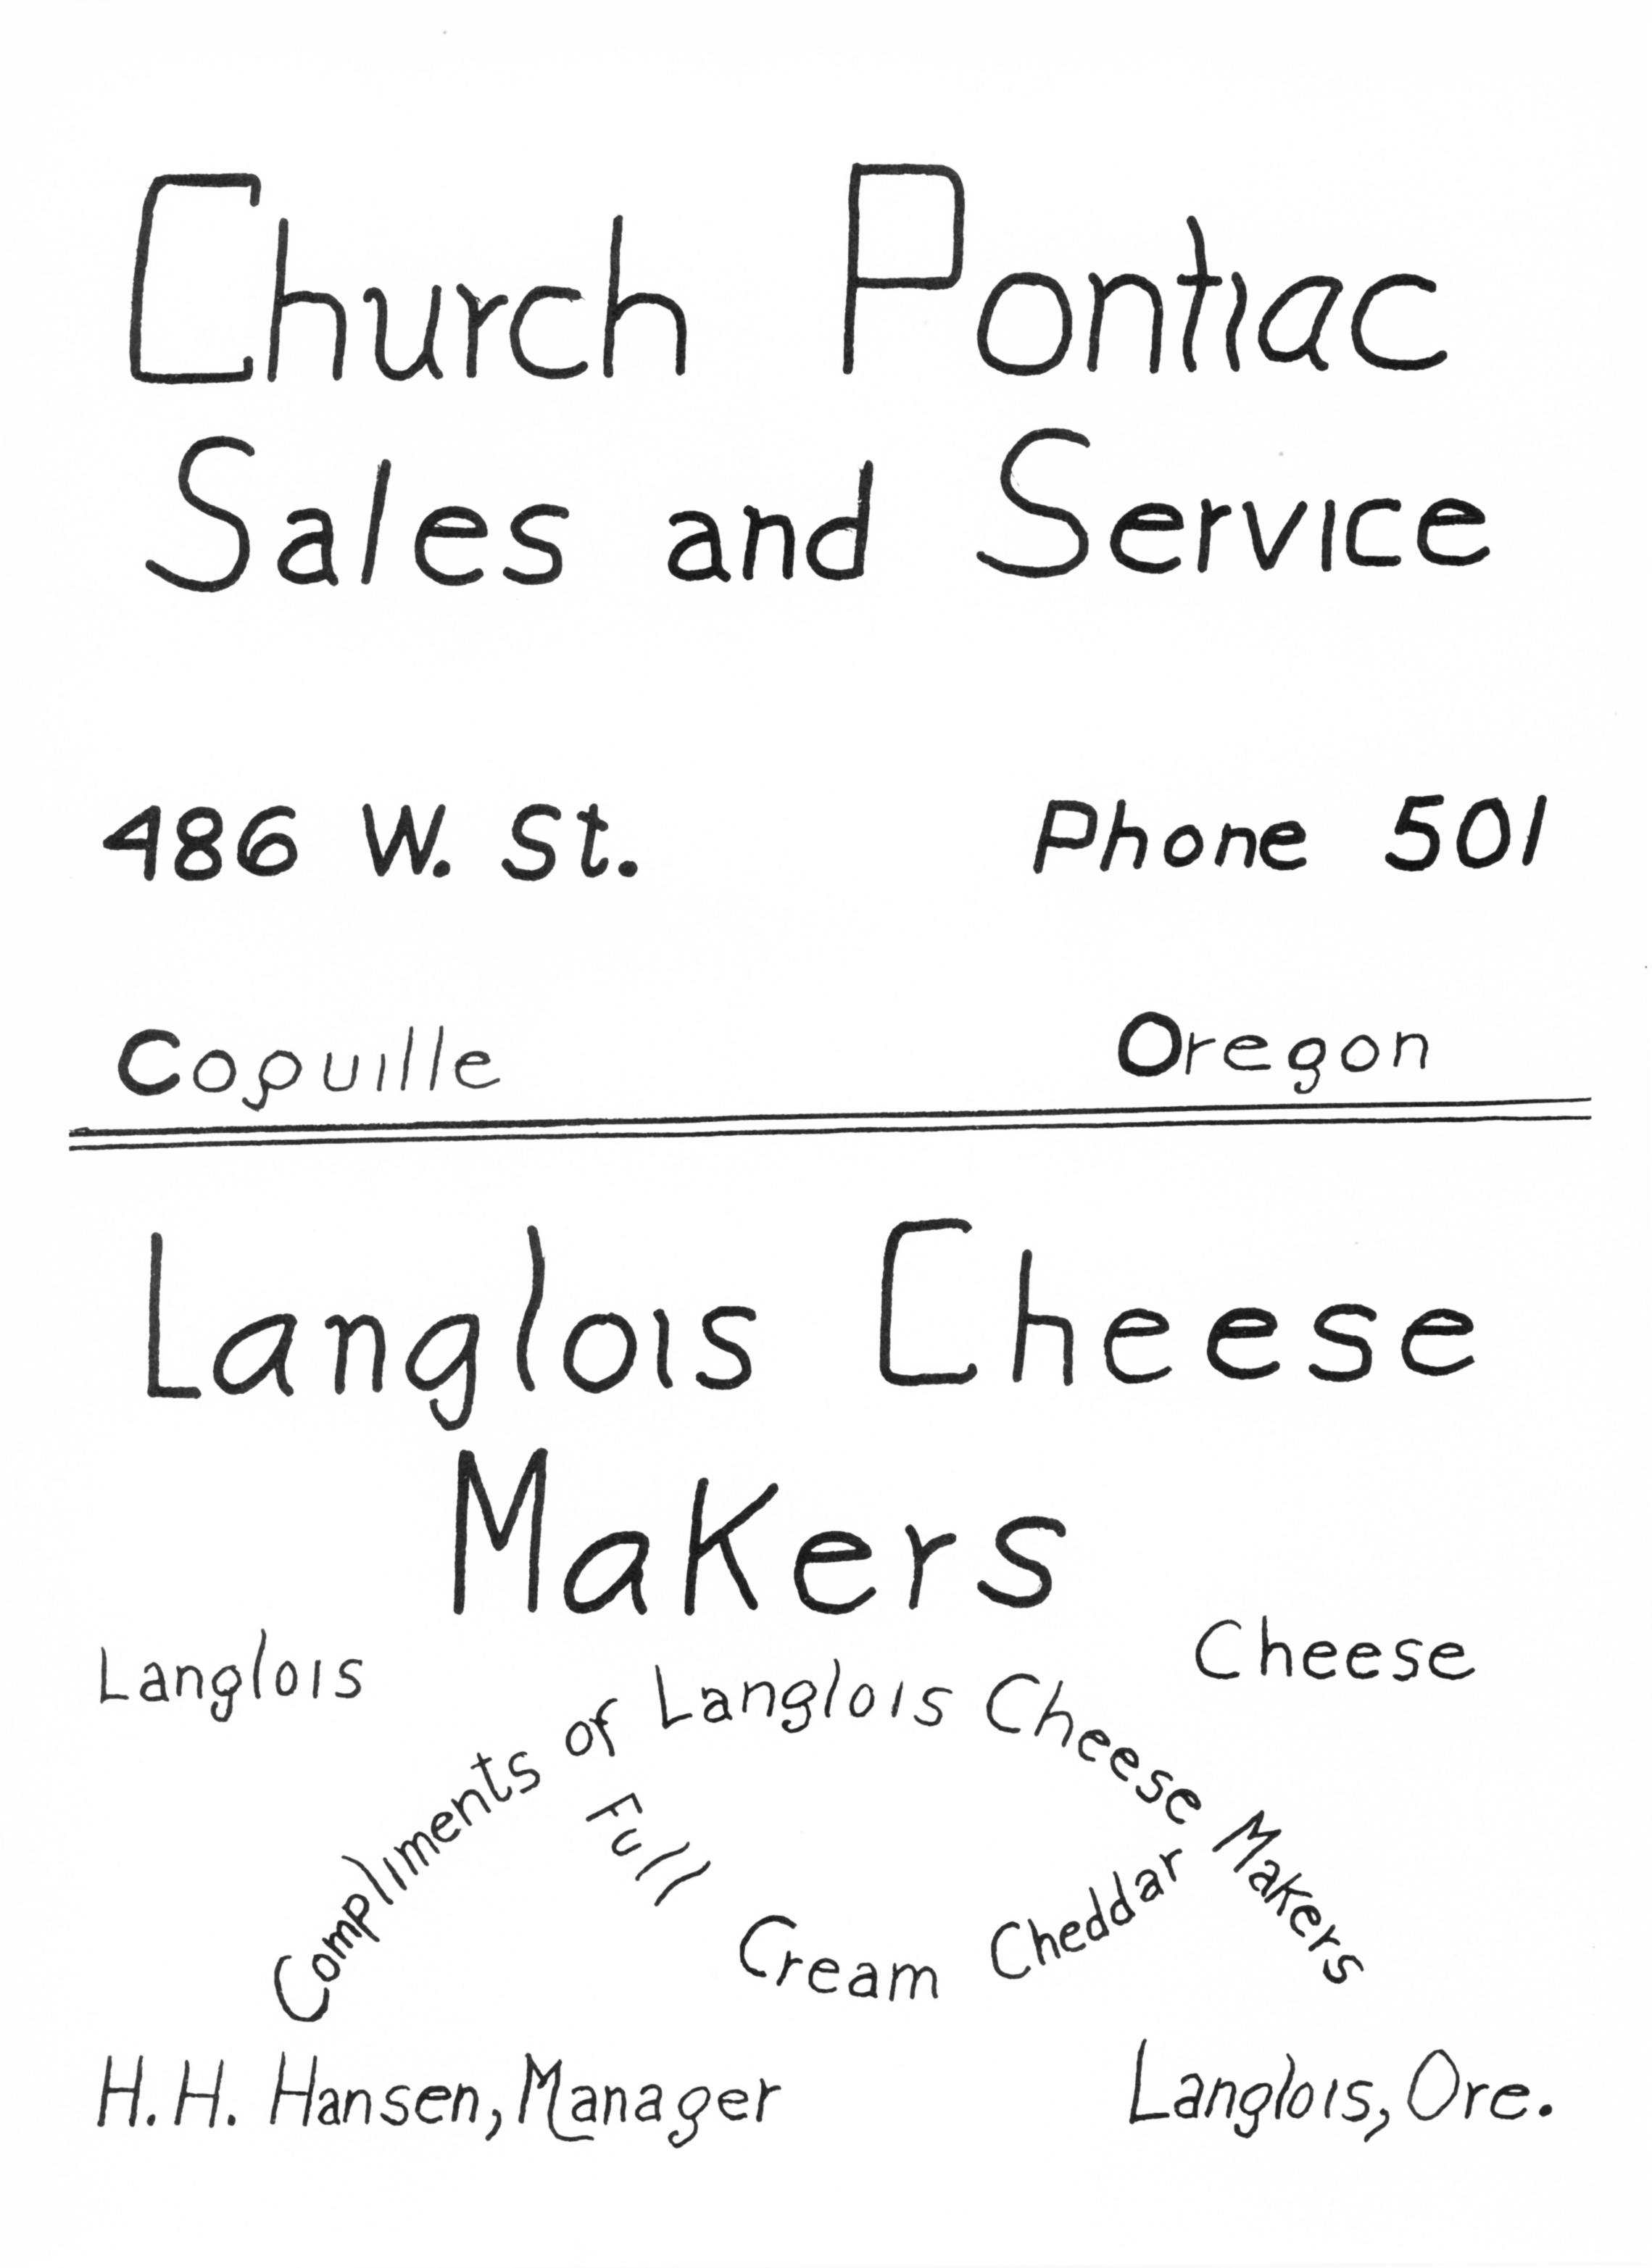 Church Pontiac
Sales and Service
486 W. St. Phone 501
Coquille Oregon
Langlois Cheese
Makers
Langlois Cheese
Compliments of Langlois Cheese Makers
Full Cream Cheddar
H. H. Hansen, Manager Langlois, Ore.